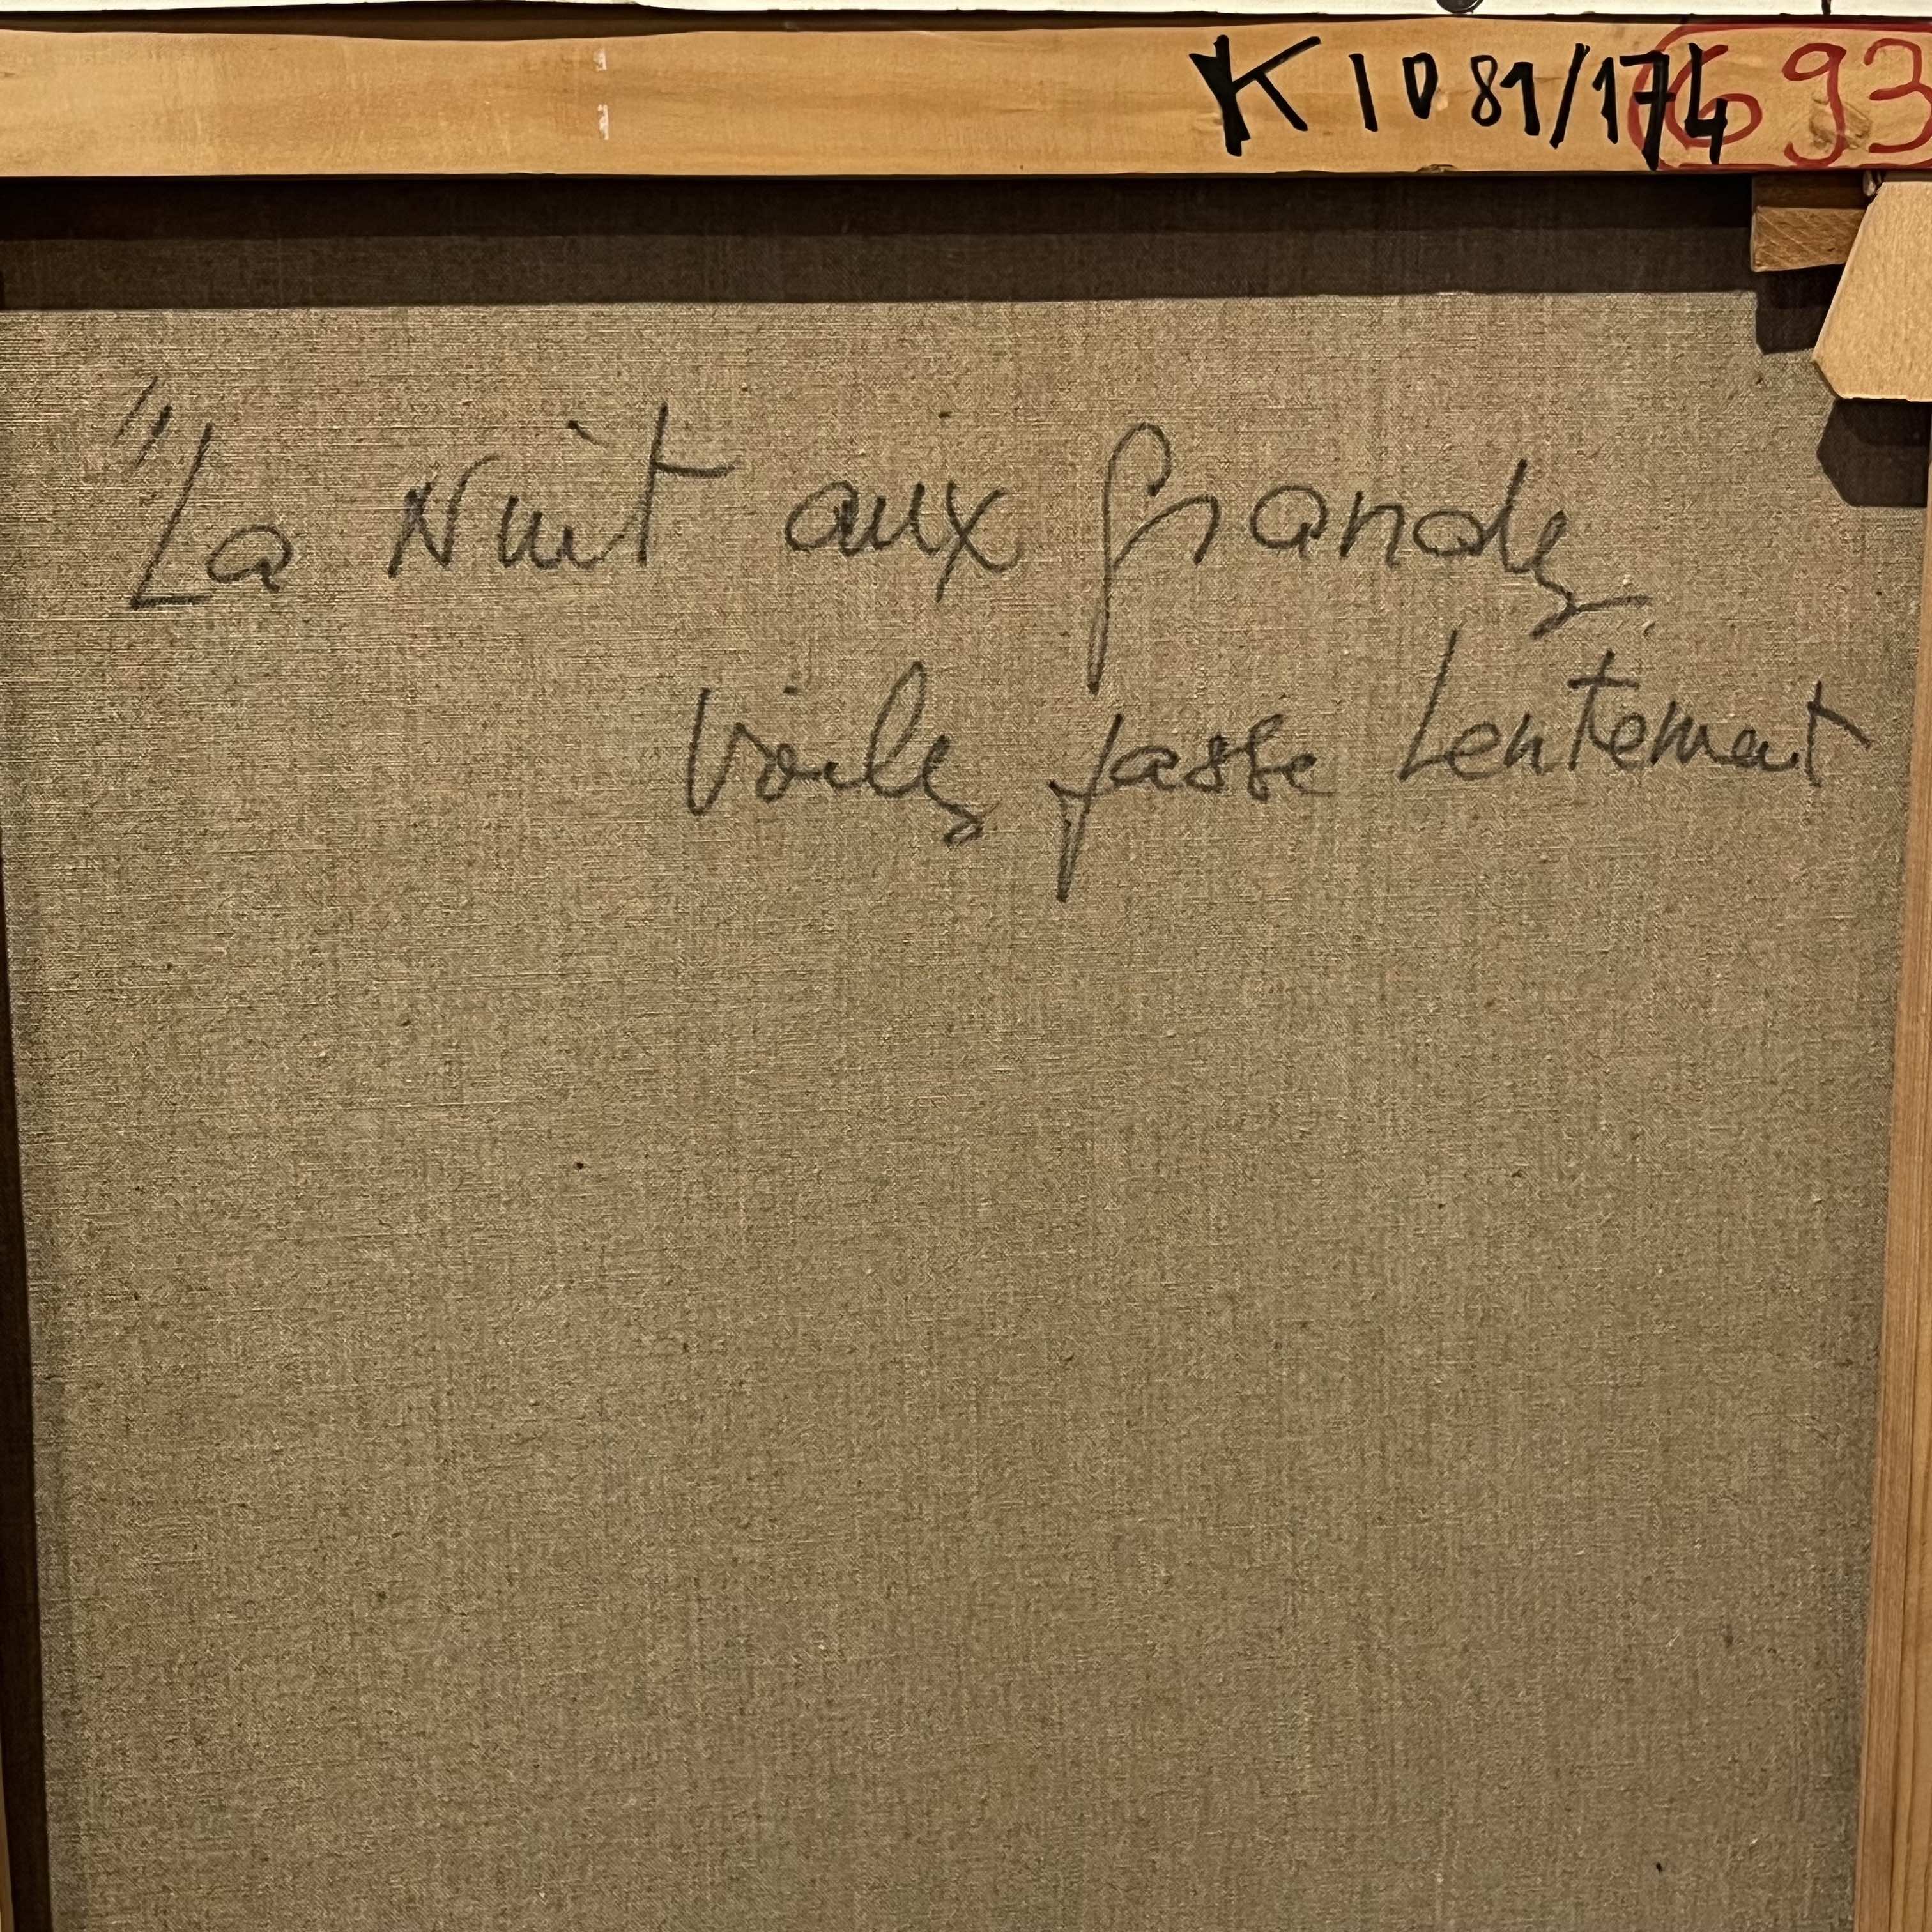 K1081/174 693
"La Nuit aux grandes
voiles passe Lentement